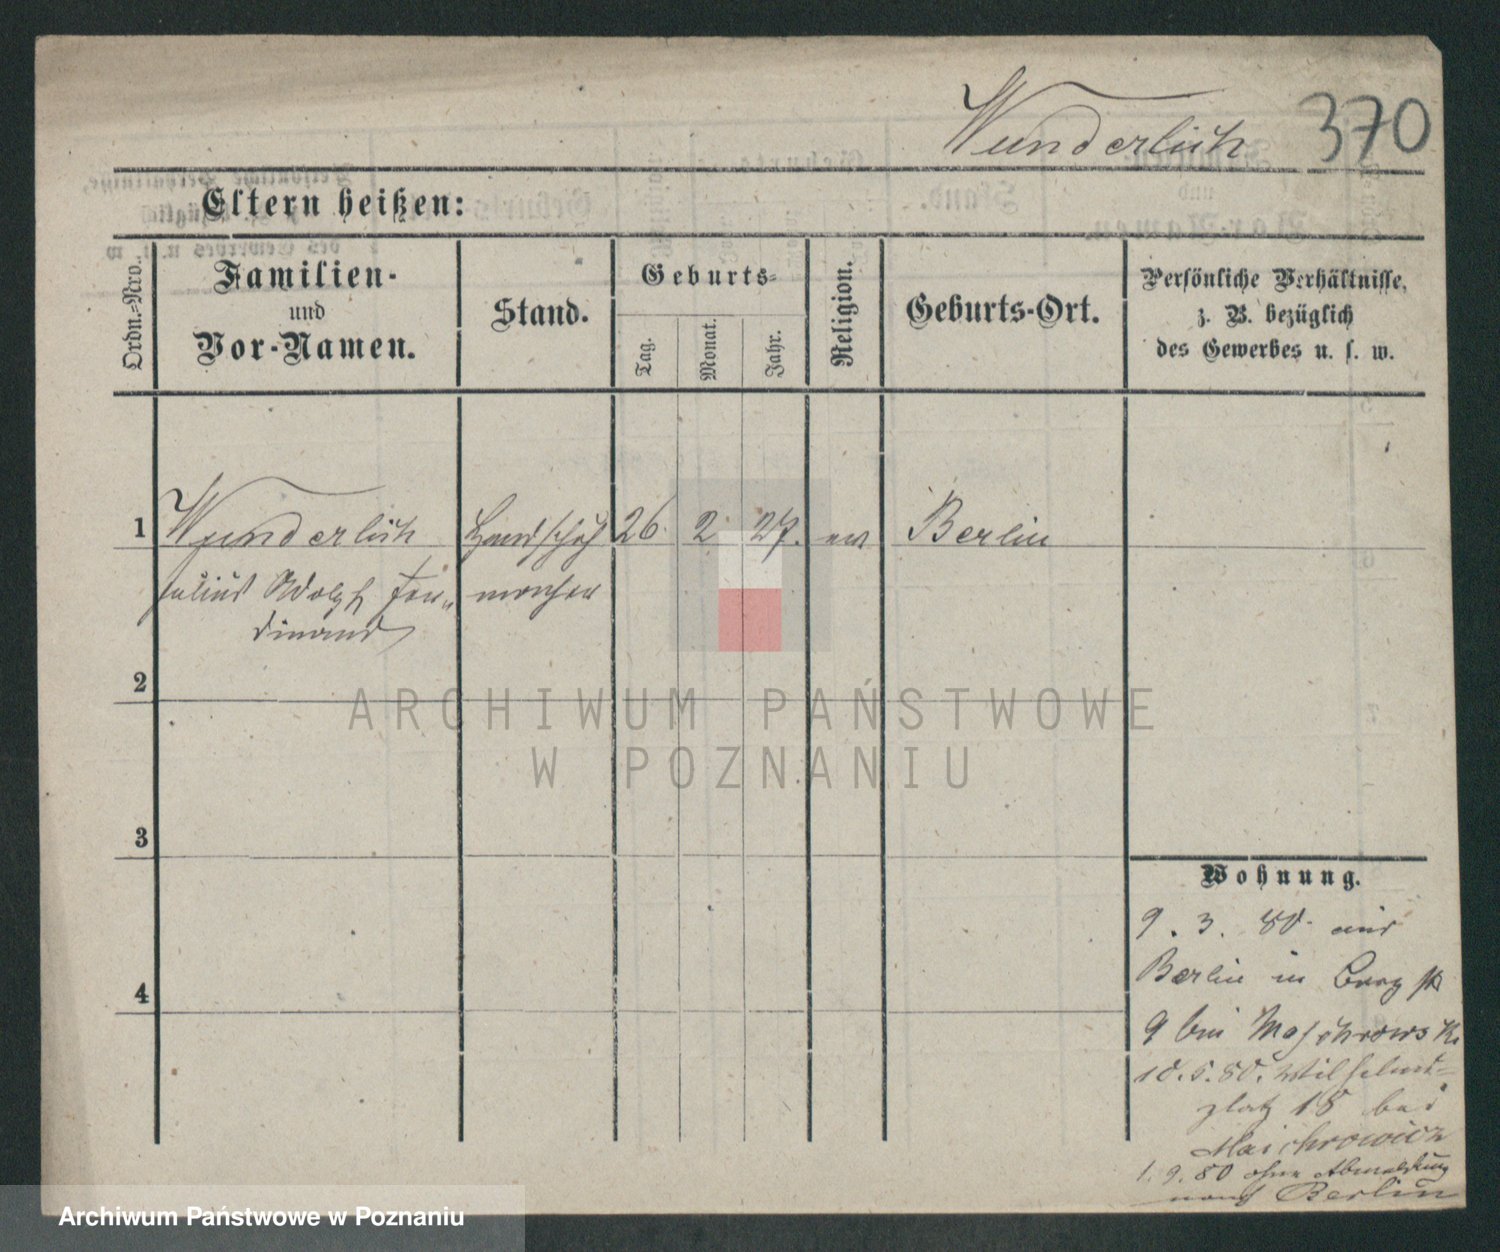 Wunderlich 370
Eltern heißen:
Ordn.-Nro.
Familien-
und
Vor-Namen.
Stand.
Geburts-
Tag.
Monat.
Jahr.
Religion.
Geburts-Ort.
Persönliche Verhältnisse,
z. B. bezüglich
des Gewerbes u. s. w.
1 Wunderlich Handschuh 26. 2 27. ev Berlin
Julius Adolph Fer- macher
dinand
2
ARCHIWUM PAŃSTWOWE
W POZNANIU
3
Wohnung.
9. 3. 80. aus
Berlin in
4
9 bei
10. 5. 80. Wilhelms-
platz 18 bei
Maichrowicz
1. 9. 80 ohne Abmeldung
nach Berlin
Archiwum Państwowe w Poznaniu